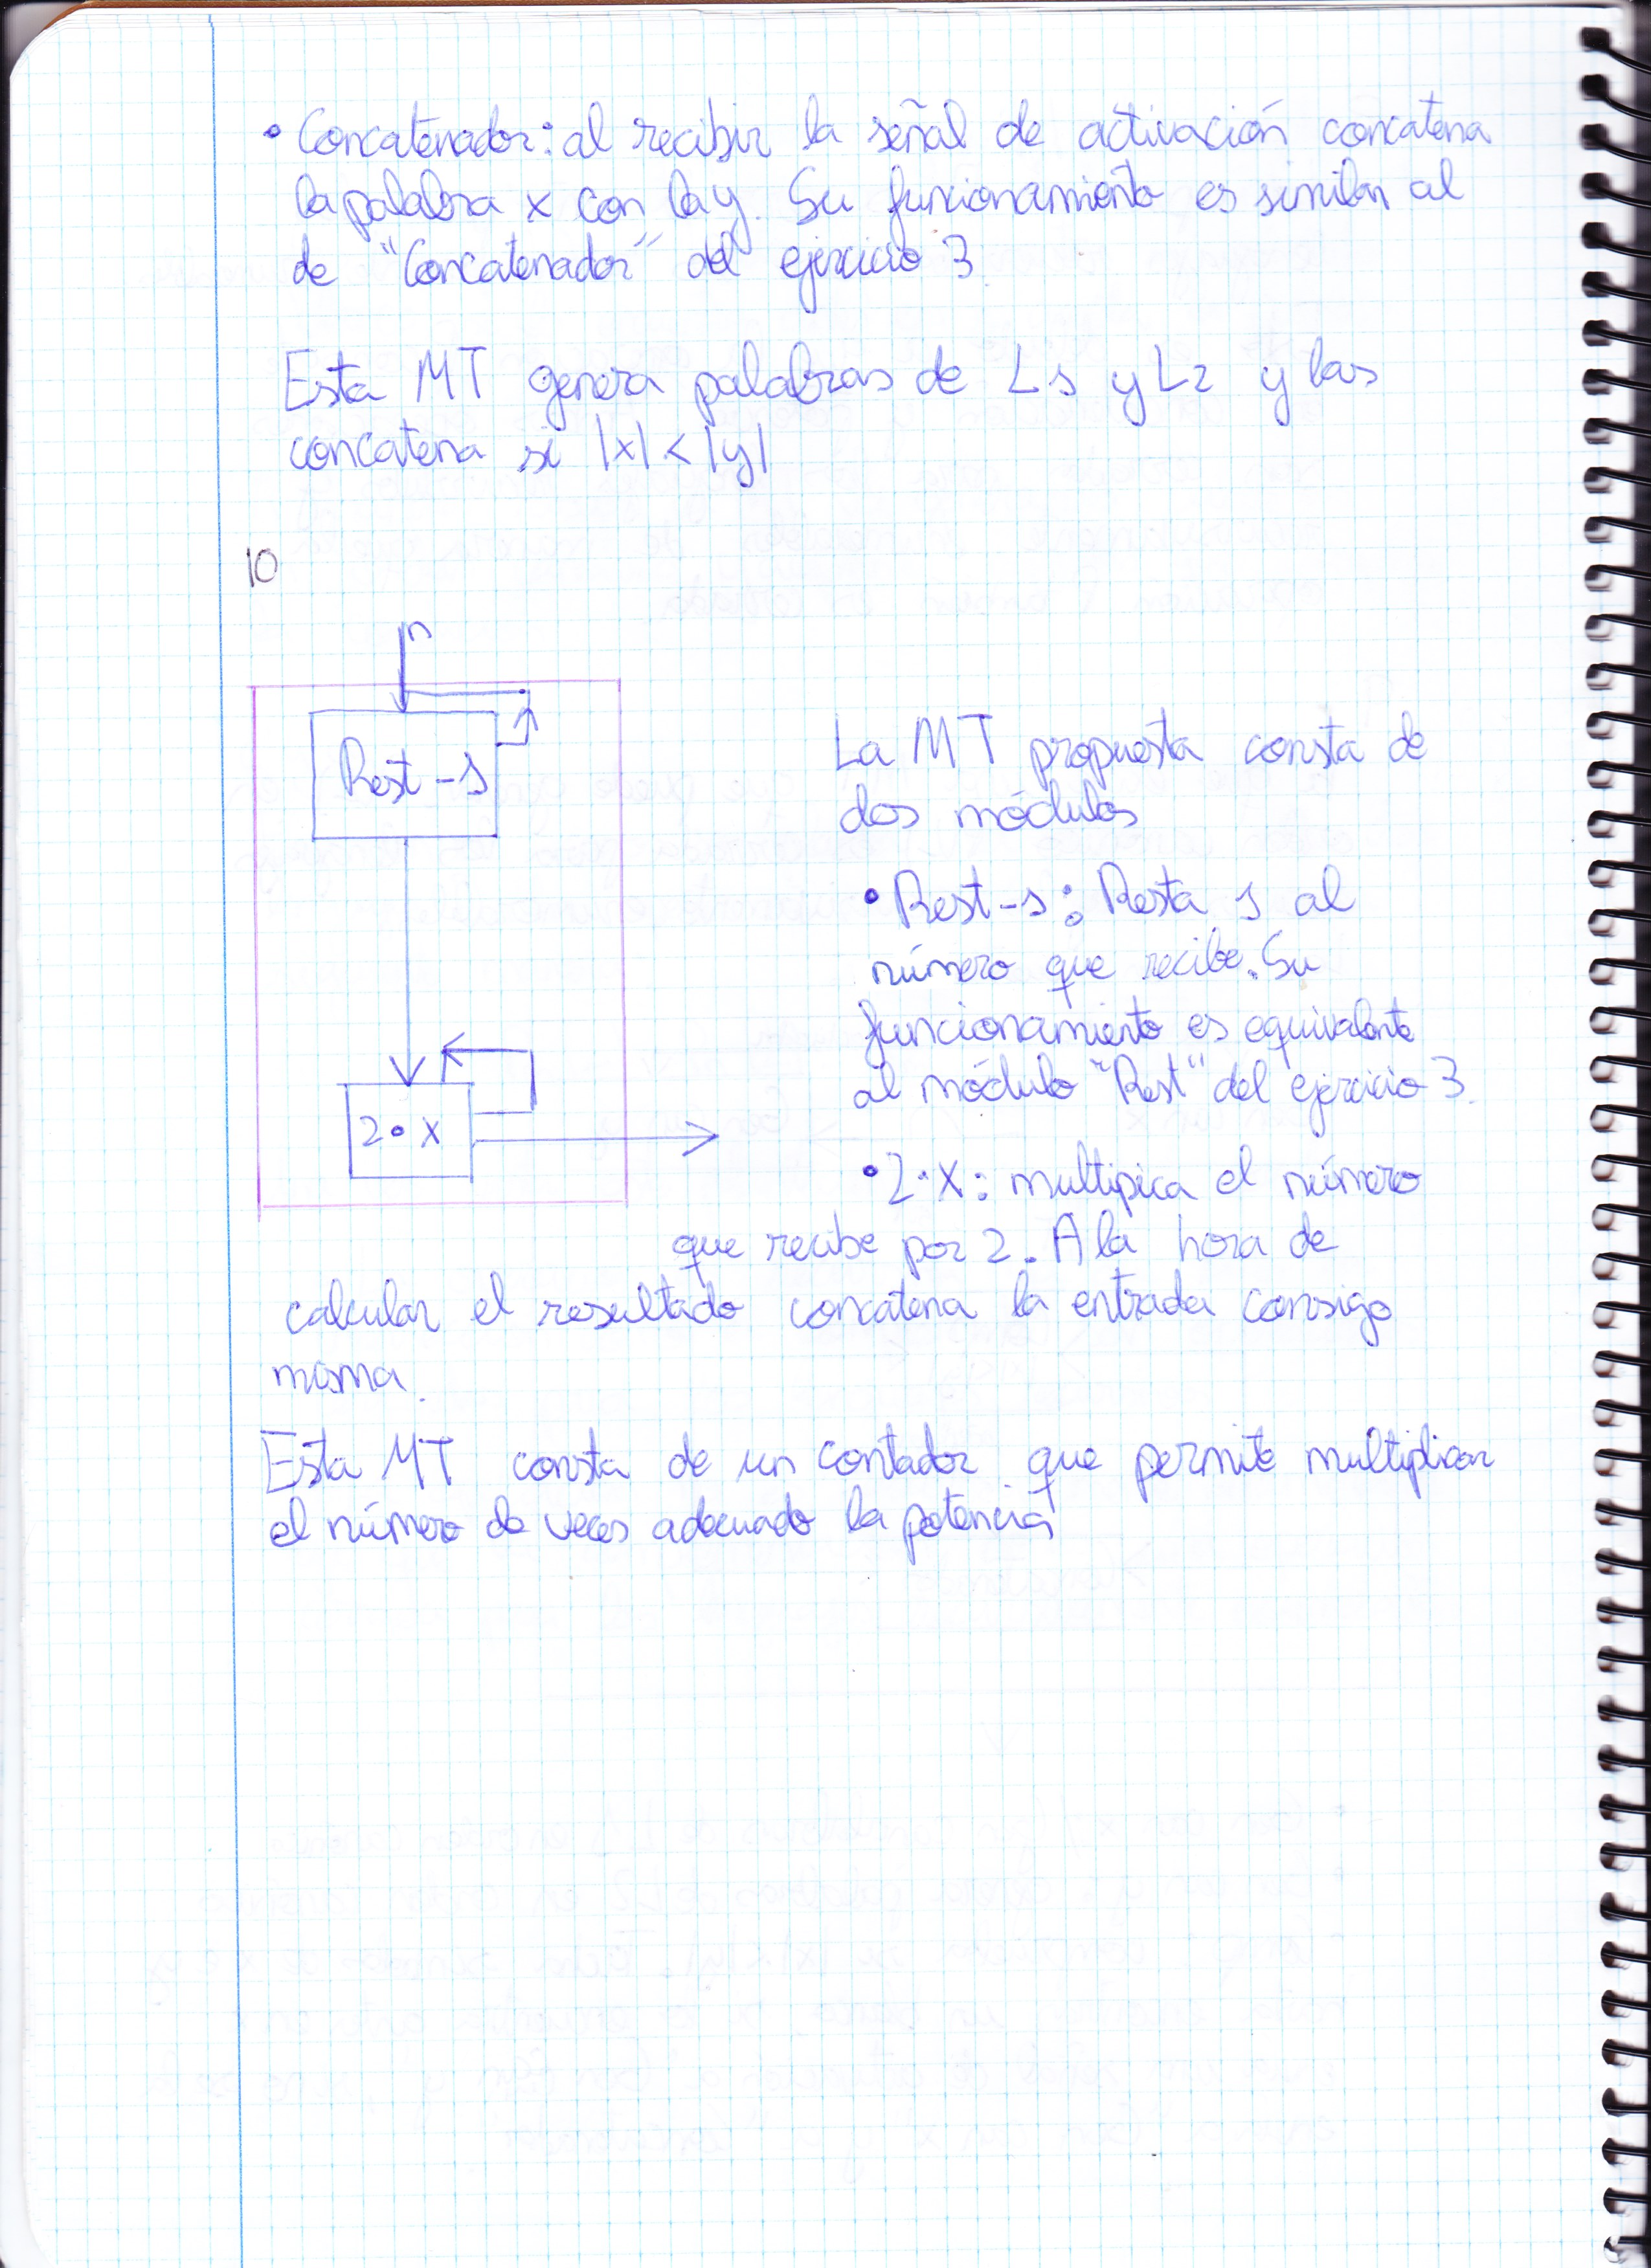 • Concatenador: al recibir la señal de activación concatena
la palabra x con la y. Su funcionamiento es similar al
de "Concatenador" del ejercicio 3.
Esta MT genera palabras de L1 y L2 y las
concatena si |x| < |y|
10
n
Rest-1
2 • X
La MT propuesta consta de
dos módulos
• Rest-1: Resta 1 al
número que recibe. Su
funcionamiento es equivalente
al módulo "Rest" del ejercicio 3.
• 2·X: multipica el número
que recibe por 2. A la hora de
calcular el resultado concatena la entrada consigo
misma.
Esta MT consta de un contador que permite multiplicar
el número de veces adecuado la potencia